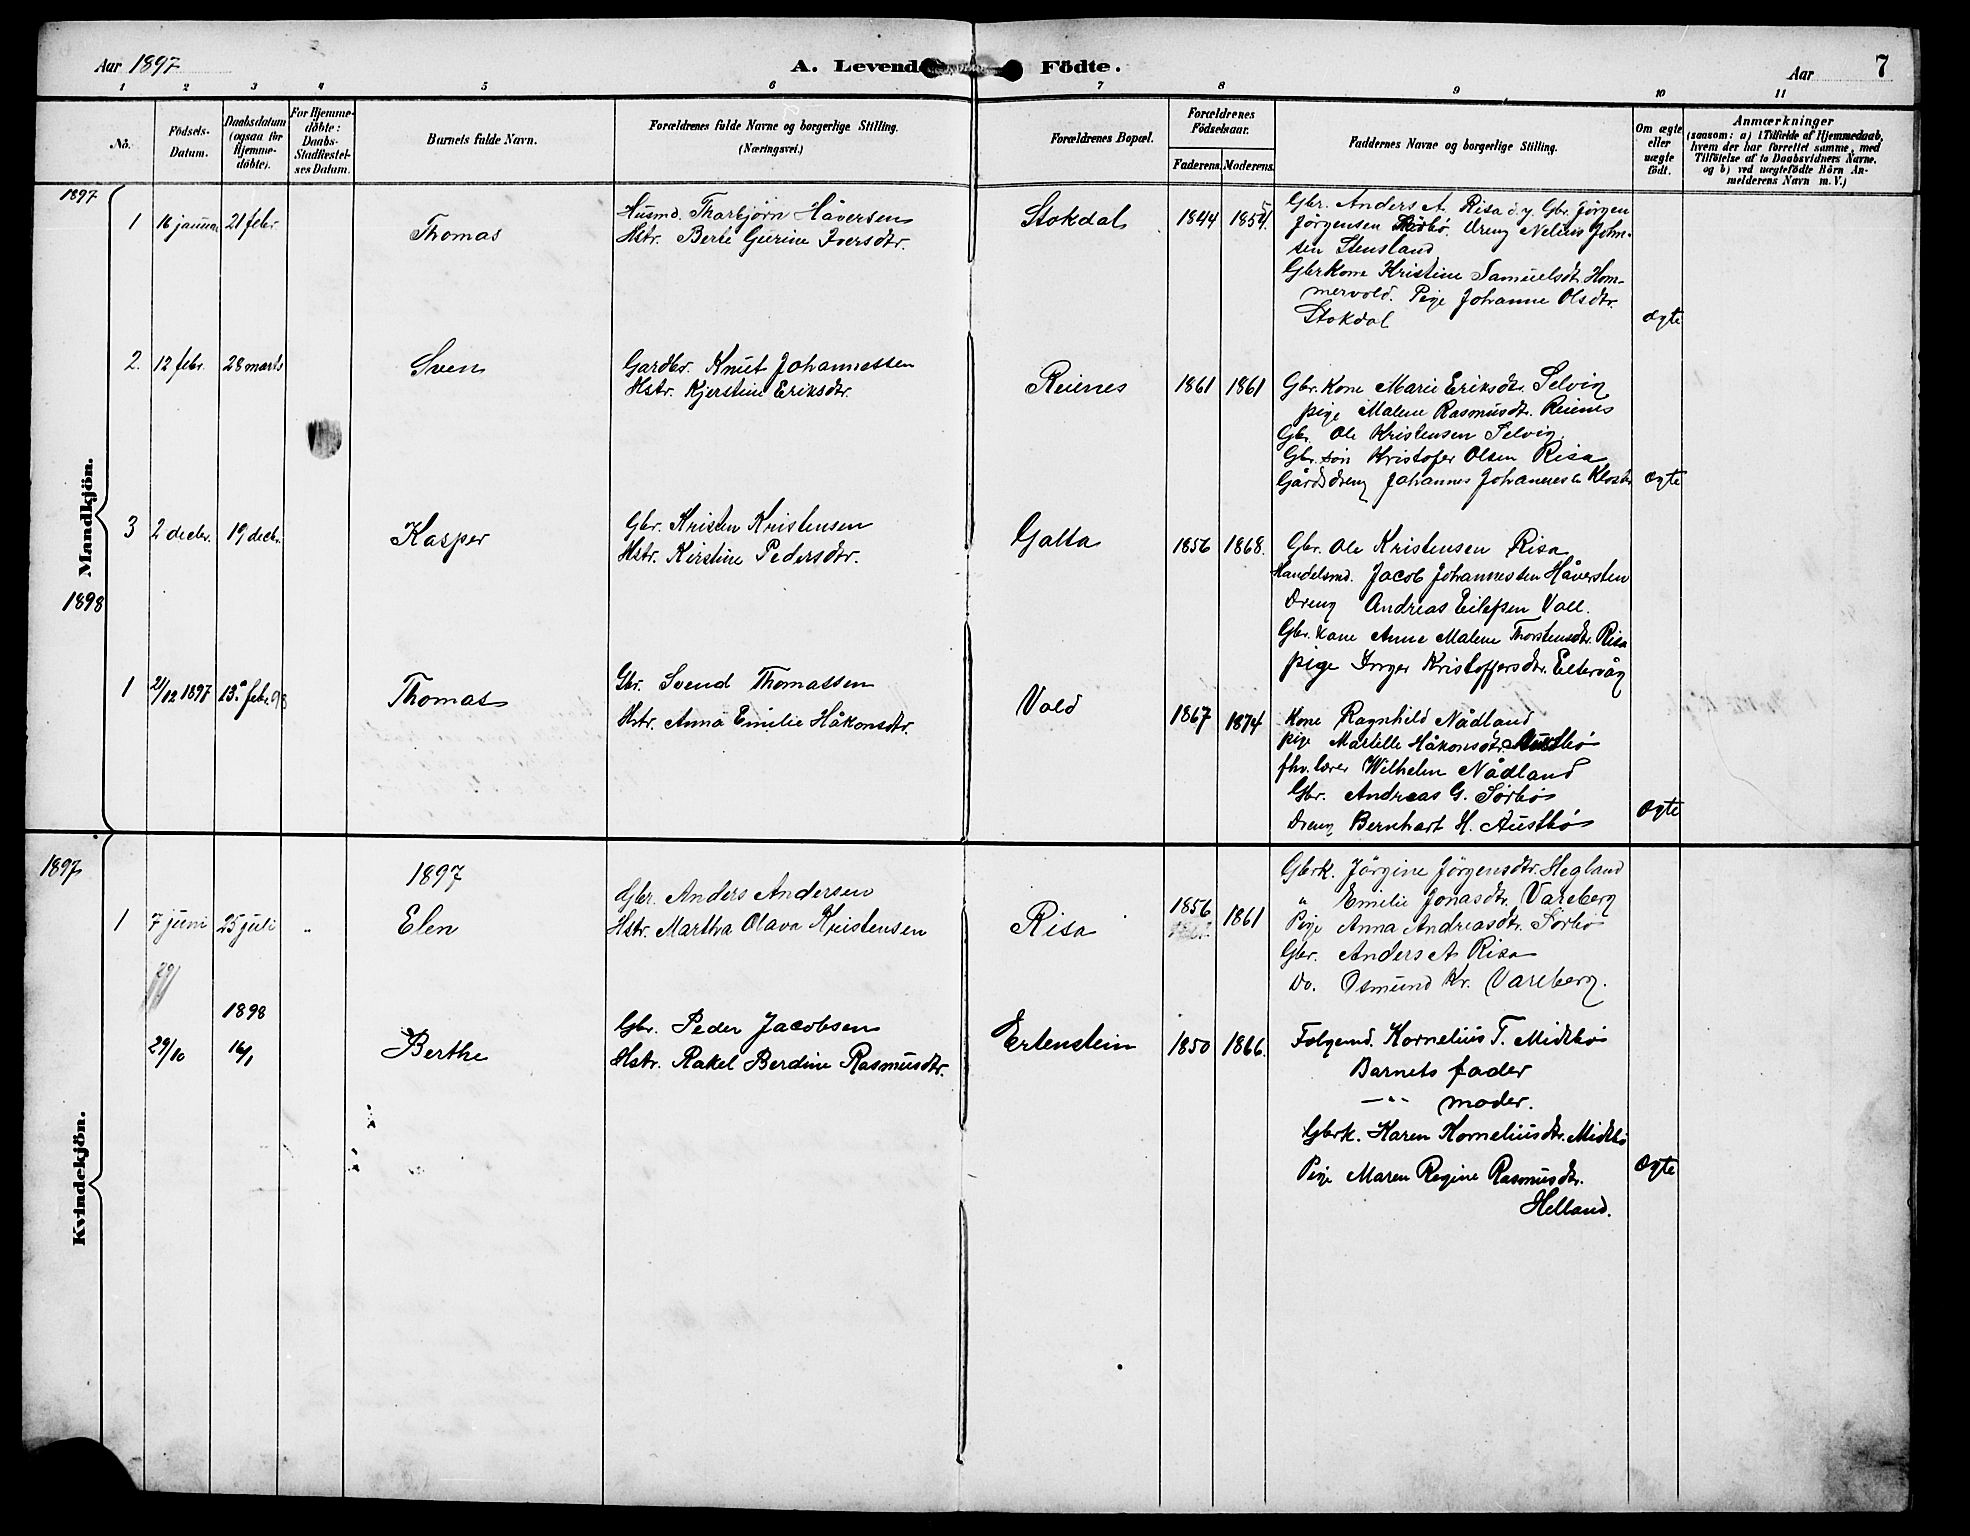 Aar 1897
A. Levende Födte.
Aar
7
1 2 3 4 5 6 7 8 9 10 11
No.
Födsels-Datum.
Daabsdatum (ogsaa for Hjemme-döbte).
For Hjemme-döbte: Daabs-Stadfæstel-ses Datum.
Barnets fulde Navn.
Forældrenes fulde Navne og borgerlige Stilling. (Næringsvei.)
Forældrenes Bopæl.
Forældrenes Födselsaar.
Faderens. Moderens.
Faddernes Navne og borgerlige Stilling.
Om ægte eller uægte født.
Anmærkninger
(saasom: a) i Tilfælde af Hjemmedaab,
hvem der har forrettet samme, med
Tilföielse af to Daabsvidners Navne.
og b) ved uægtefödte Börn An-
melderens Navn m. V.)
Mandkjön.
1897
1 16 januar 21 febr. Thomas
Husmd. Tharbjörn Håversen
Hstr. Berte Gurine Iversdtr.
Stokdal 1844 1854.
Gbr. Anders A. Risa d. y. Gbr. Jörgen
Jörgensen Dreng Nelius John-
sen Stensland
Gbrkone Kristine Samuelsdt. Hom-
mervold. Pige Johanne Olsdtr.
Stokdal
ægte
2. 12 febr. 28 marts Sven
Gardbr. Knut Johannessen
Hstr. Kjerstine Eriksdtr.
Reienes 1861 1861
Gbr. Kone Marie Eriksdtr. Selvig
pige Malene Rasmusdtr. Reienes
Gbr. Ole Kristensen Selvig.
Gbr. sön Kristofer Olsen Risa
Gårdsdreng Johannes Johannesen Kloster
ægte
3 2 decbr. 19 decbr. Kasper
Gbr. Kristen Kristensen
Hstr. Kirstine Pedersdtr.
Galta 1856 1868.
Gbr. Ole Kristensen Risa
Handelsmd. Jacob Johannessen Håversten
Dreng Andreas Eilefsen Voll.
Gbr. kone Anne Malene Thorstensdtr. Risa
pige Inger Kristoffersdtr. Eltervåg
1898
1 2/12 1897 13. febr. 98 Thomas
Gbr. Svend Thomassen
Hstr. Anna Emilie Håkonsdtr.
Vold 1867 1874
Kone Ragnhild Nådland
pige Martelle Håkonsdtr. Austbö
fhv. lærer Wilhelm Nådland
Gbr. Andreas G. Sörbö
Dreng Bernhart H. Austbö
ægte
Kvindekjön.
1897
1897
1 7 juni 25 juli " Elen
Gbr. Anders Andersen
Hstr. Martha Olava Kristensen
Risa 1856 1861
Gbrk. Jörgine Jörgensdtr. Hegland
" Emilie Jonasdtr. Vareberg
Pige Anna Andreasdtr. Sörbö
Gbr. Anders A Risa
Do. Osmund Kr. Vareberg.
29/
1898
29/10 16/1 Berthe
Gbr. Peder Jacobsen
Hstr. Rakel Berdine Rasmusdtr.
Ertenstein 1850 1866.
Folgemd. Kornelius T. Midtbö
Barnets fader
—"— moder.
Gbrk. Karen Korneliusdtr. Midtbö
Pige Maren Regine Rasmusdtr.
Helland.
ægte